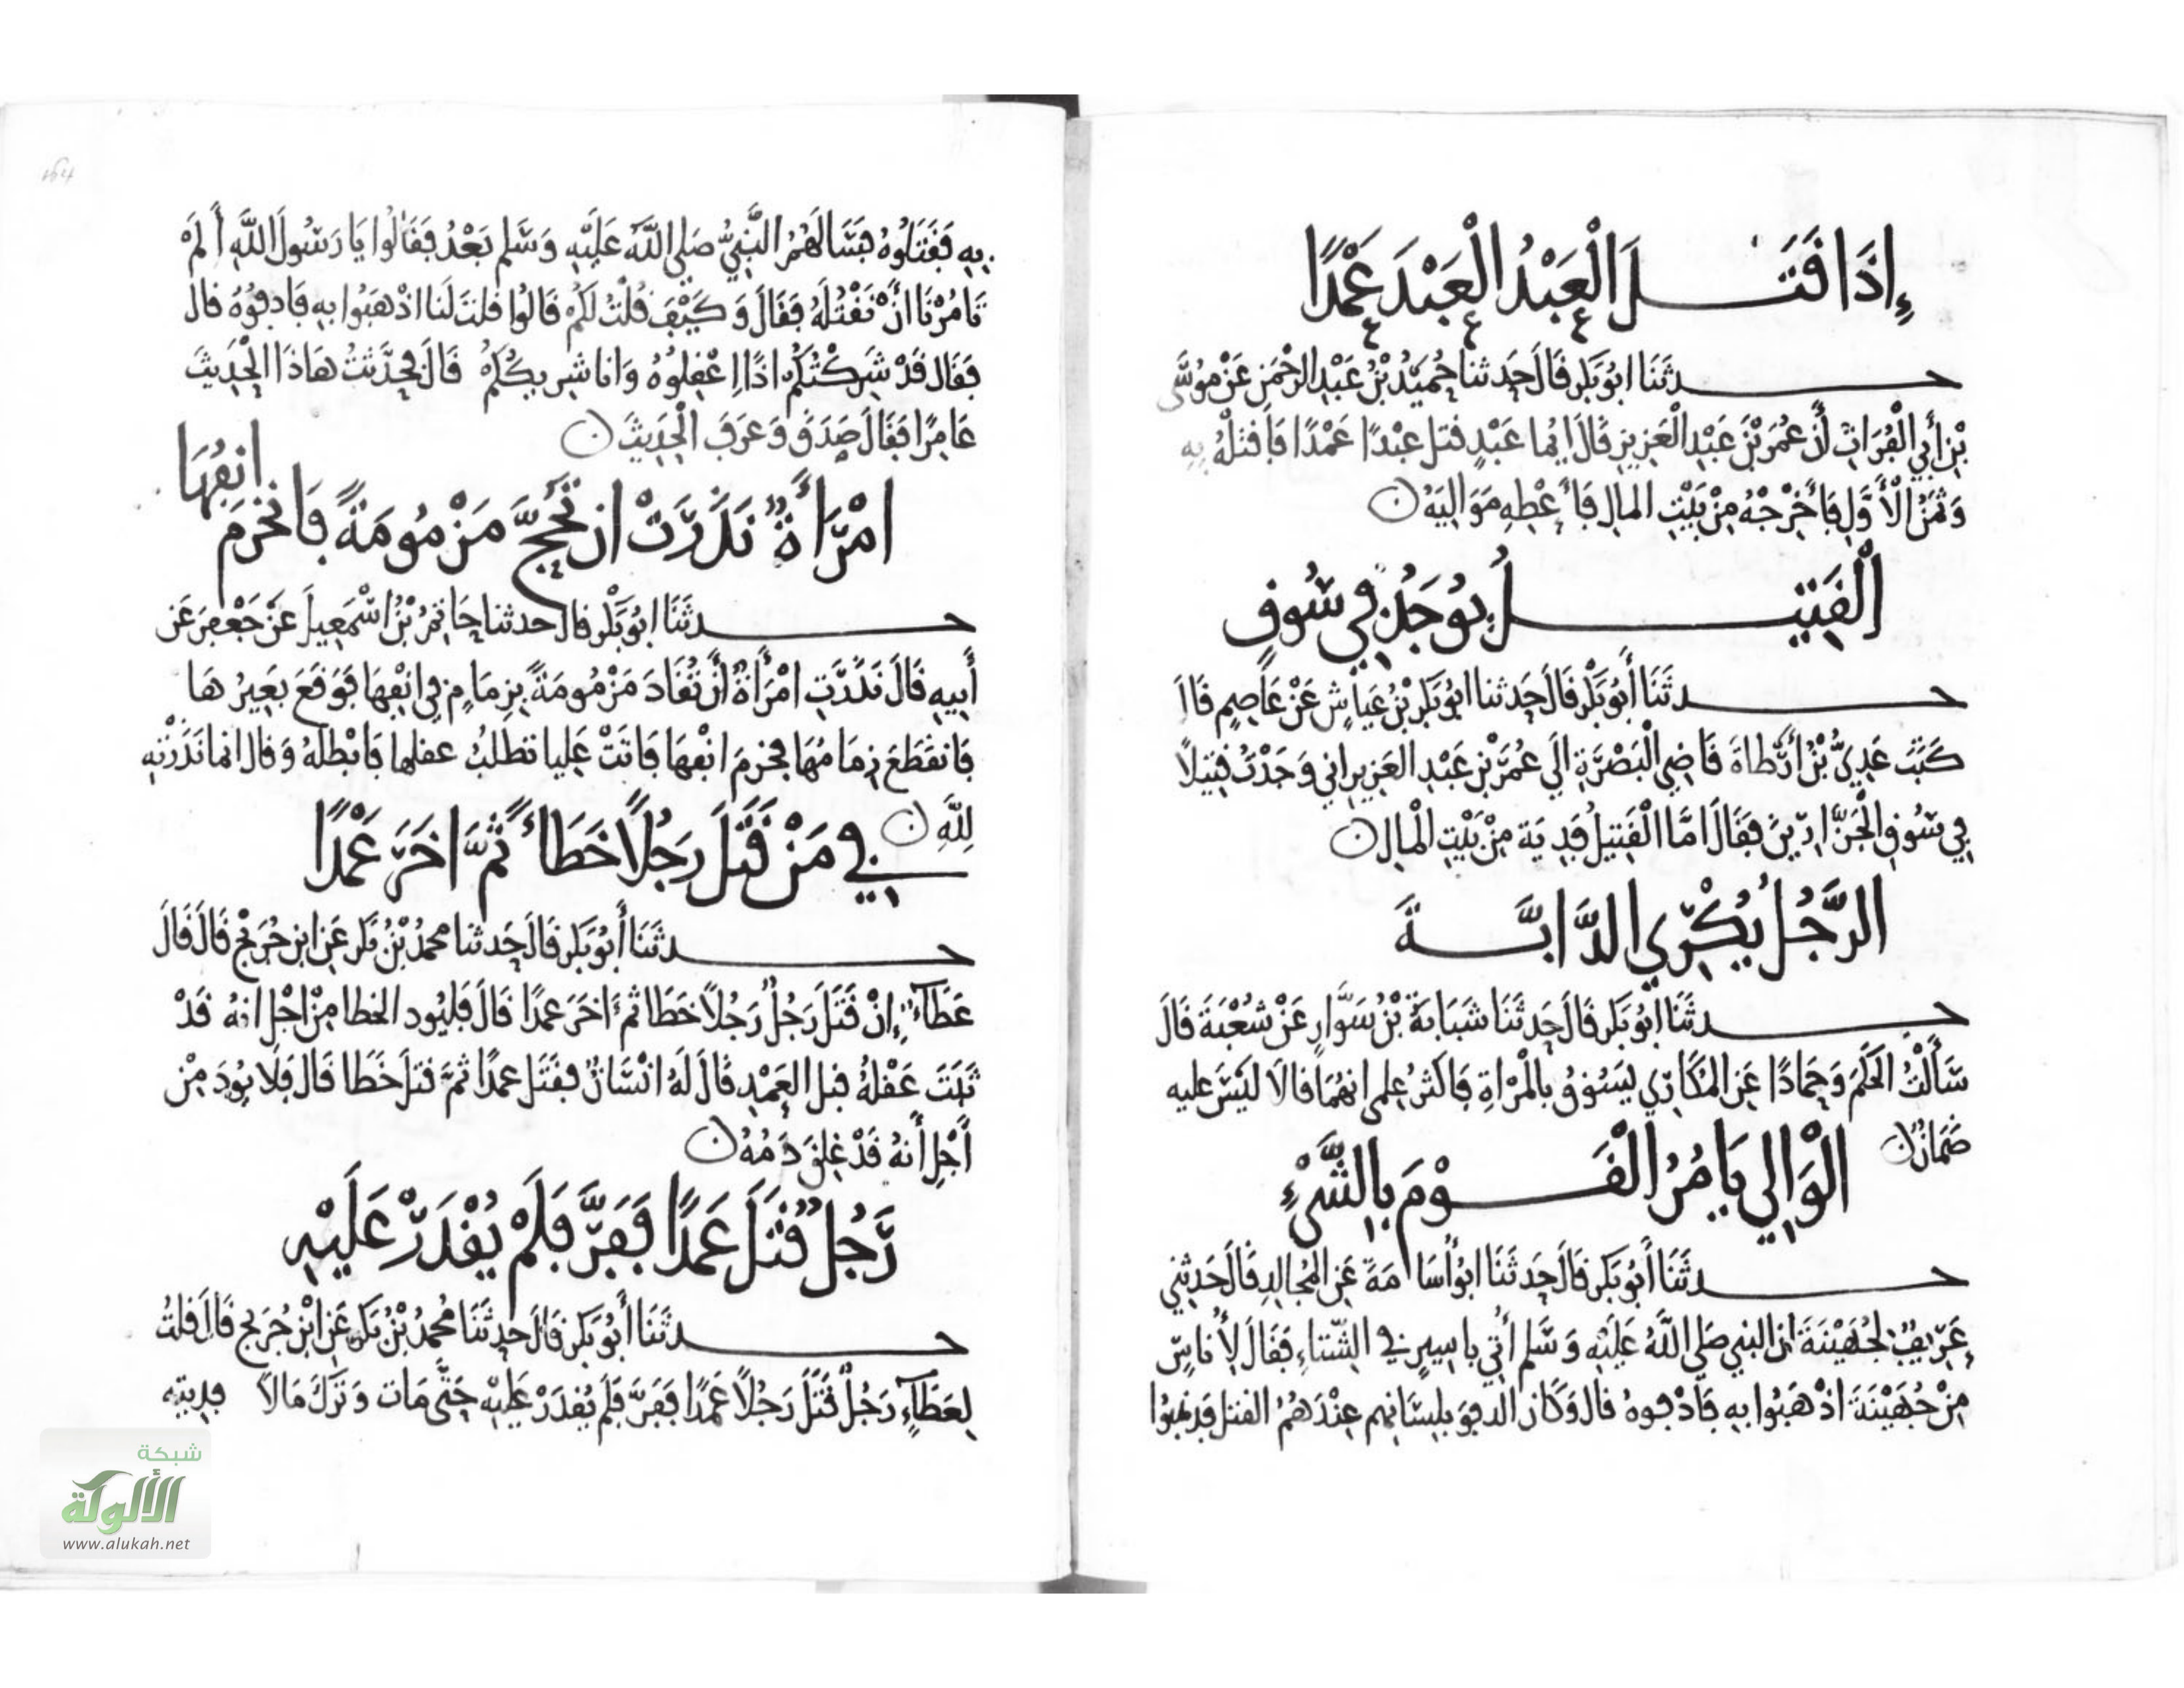 إِذَا قَتَلَ الْعَبْدُ الْعَبْدَ عَمْدًا
حدثَنَا ابُو بَكر قَالَ حَدثنا حُمَيْدُ بْنُ عَبْدِ الرَّحْمَنِ عَنْ مُوسَى
بْنِ أَبِي الْفُرَاتِ أَنَّ عُمَرَ بْنَ عَبْدِ الْعَزِيزِ قَالَ ايُما عَبْدٍ قتل عبْدًا عَمْدًا فَاقتلْهُ بِهِ
وَثَمَنُ الْأَوَّلِ فَأَخْرِجْهُ مِنْ بَيْتِ المالِ فَأَعْطِهِ مَوَالِيَهُ
الْقَتِيلُ يُوجَدُ فِي سُوقٍ
حدثَنَا أَبُو بَكْر قَالَ حَدثنا ابُو بَكرِ بْنُ عَيَّاشٍ عَنْ عَاصِمٍ قَالَ
كَتَبَ عَدِيُّ بْنُ أَرْطَاةَ قَاضِي الْبَصْرَةِ الَي عُمَرَ بْنِ عَبْدِ العَزِيز اني وَجَدْتُ قتِيلًا
فِي سُوقِ الْجَزَّارِينَ فَقَالَ امَّا الْقَتِيلُ فَدِيَة مِنْ بَيْتِ الْمالِ
الرَّجُلُ يُكْرِي الدَّابَّةَ
حدثَنَا ابُو بَكر قَالَ حَدثَنَا شَبَابَةُ بْنُ سَوَّارٍ عَنْ شُعْبَةَ قَالَ
سَأَلْتُ الحَكَمَ وَحَمادًا عَنِ المُكَارِي يَسُوقُ بالْمَرْاةِ فَاكثرُ علمي انهُمَا قالَا لَيْسَ عليه
ضَمانٌ
الْوَالِي يَامُرُ الْقَوْمَ بِالشَّيْءِ
حدثَنَا أَبُو بَكر قَالَ حَدثَنَا ابُو أُسَامَةَ عَنِ المُجالِدِ قَالَ حَدثنِي
عَرِيفٌ لِجُهَيْنَةَ ان النبي صَلي اللَّهُ عَلَيْهِ وَسَلم أُتِي باسِيرٍ فِي الشتاءِ فَقَالَ لِأُناسٍ
مِنْ جُهَيْنَةَ اذْهَبُوا بِهِ فَادْفُوهُ قال وَكَانَ الدفوُ بلِسَانِهِم عِنْدَهُمُ القتل فذهَبُوا
بِهِ فَقَتَلُوهُ فسَالَهُمُ النَّبِيُّ صَلي اللَّهُ عَلَيْهِ وَسَلم بَعْدُ فَقَالُوا يَا رَسُولَ اللَّهِ أَلَمْ
تَامُرْنَا أَنْ نَقْتُلَهُ فَقَالَ وَكَيْفَ قُلْتُ لَكُمْ قَالُوا قلتَ لَنا اذْهَبُوا بِهِ فَادفُوُهُ قالَ
فَقَال قَدْ شَرِكْتُكُمْ اذًا اِعْقِلُوُهُ وَانا شرِيكُكُمْ قَالَ فحَدَّثتُ هَاذَا الْحَدِيثَ
عَامِرًا فَقَالَ صَدَقَ وَعَرَفَ الْحَدِيثَ
امْرَأَةٌ نَذَرَتْ ان تَحُجَّ مَزْمُومَةً فَانْخَرَمَ انفُهَا
حدثَنَا ابُو بَكْر قالَ حدثنا حَاتمُ بْنُ اسْمَعِيلَ عَنْ جَعْفَرٍ عَن
أَبِيهِ قَالَ نَذَرَتِ امْرَأَةٌ أَنْ تُقَادَ مَزْمُومَةً بِزِمَامٍ فِي انْفِهَا فَوَقَعَ بَعِيرُهَا
فَانقَطَعَ زِمَامُهَا فخرِمَ انْفهَا فَاتَتْ عَلِيا تطلبُ عقلها فَابْطَلهُ وَقال انما نَذَرْتِهِ
لِلَّهِ
فِي مَنْ قَتَلَ رَجُلًا خَطَاءً ثُمَّ اخَرَ عَمْدًا
حدثَنَا أَبُو بَكر قَالَ حَدثنا محمدُ بْنُ بَكر عَنِ ابنِ جُرَيْجٍ قَالَ قَالَ
عَطَاءٌ إِنْ قَتَلَ رَجُلٌ رَجُلًا خَطَا ثُمَّ اخَرَ عَمدًا قَالَ فَليُود الخطا مِنْ اجْلِ انهُ قَدْ
ثَبَتَ عَقْلُهُ قبل العَمْدِ قَالَ لَهُ انْسَانٌ فقَتَل عمدًا ثمَّ قتلَ خَطَا قَال فلَا يُودَ مِنْ
أَجْلِ أَنهُ قَدْ غلِقَ دَمُهُ
رَجُلٌ قَتَلَ عَمدًا فَفَرَّ فَلَمْ يُقْدَرْ عَلَيْهِ
حدثَنَا أَبُو بَكر قَالَ حدثَنَا مُحمدُ بْنُ بَكر عَنِ ابْنِ جُرَيج قَالَ قلتُ
لِعَطَآءٍ رَجُلٌ قَتَلَ رَجُلًا عَمْدًا فَفَرَّ فَلَمْ يُقدَرْ عَلَيْهِ حَتَّى مَات وَتَرَكَ مَالًا فدِيته
شبكة
الألوكة
www.alukah.net